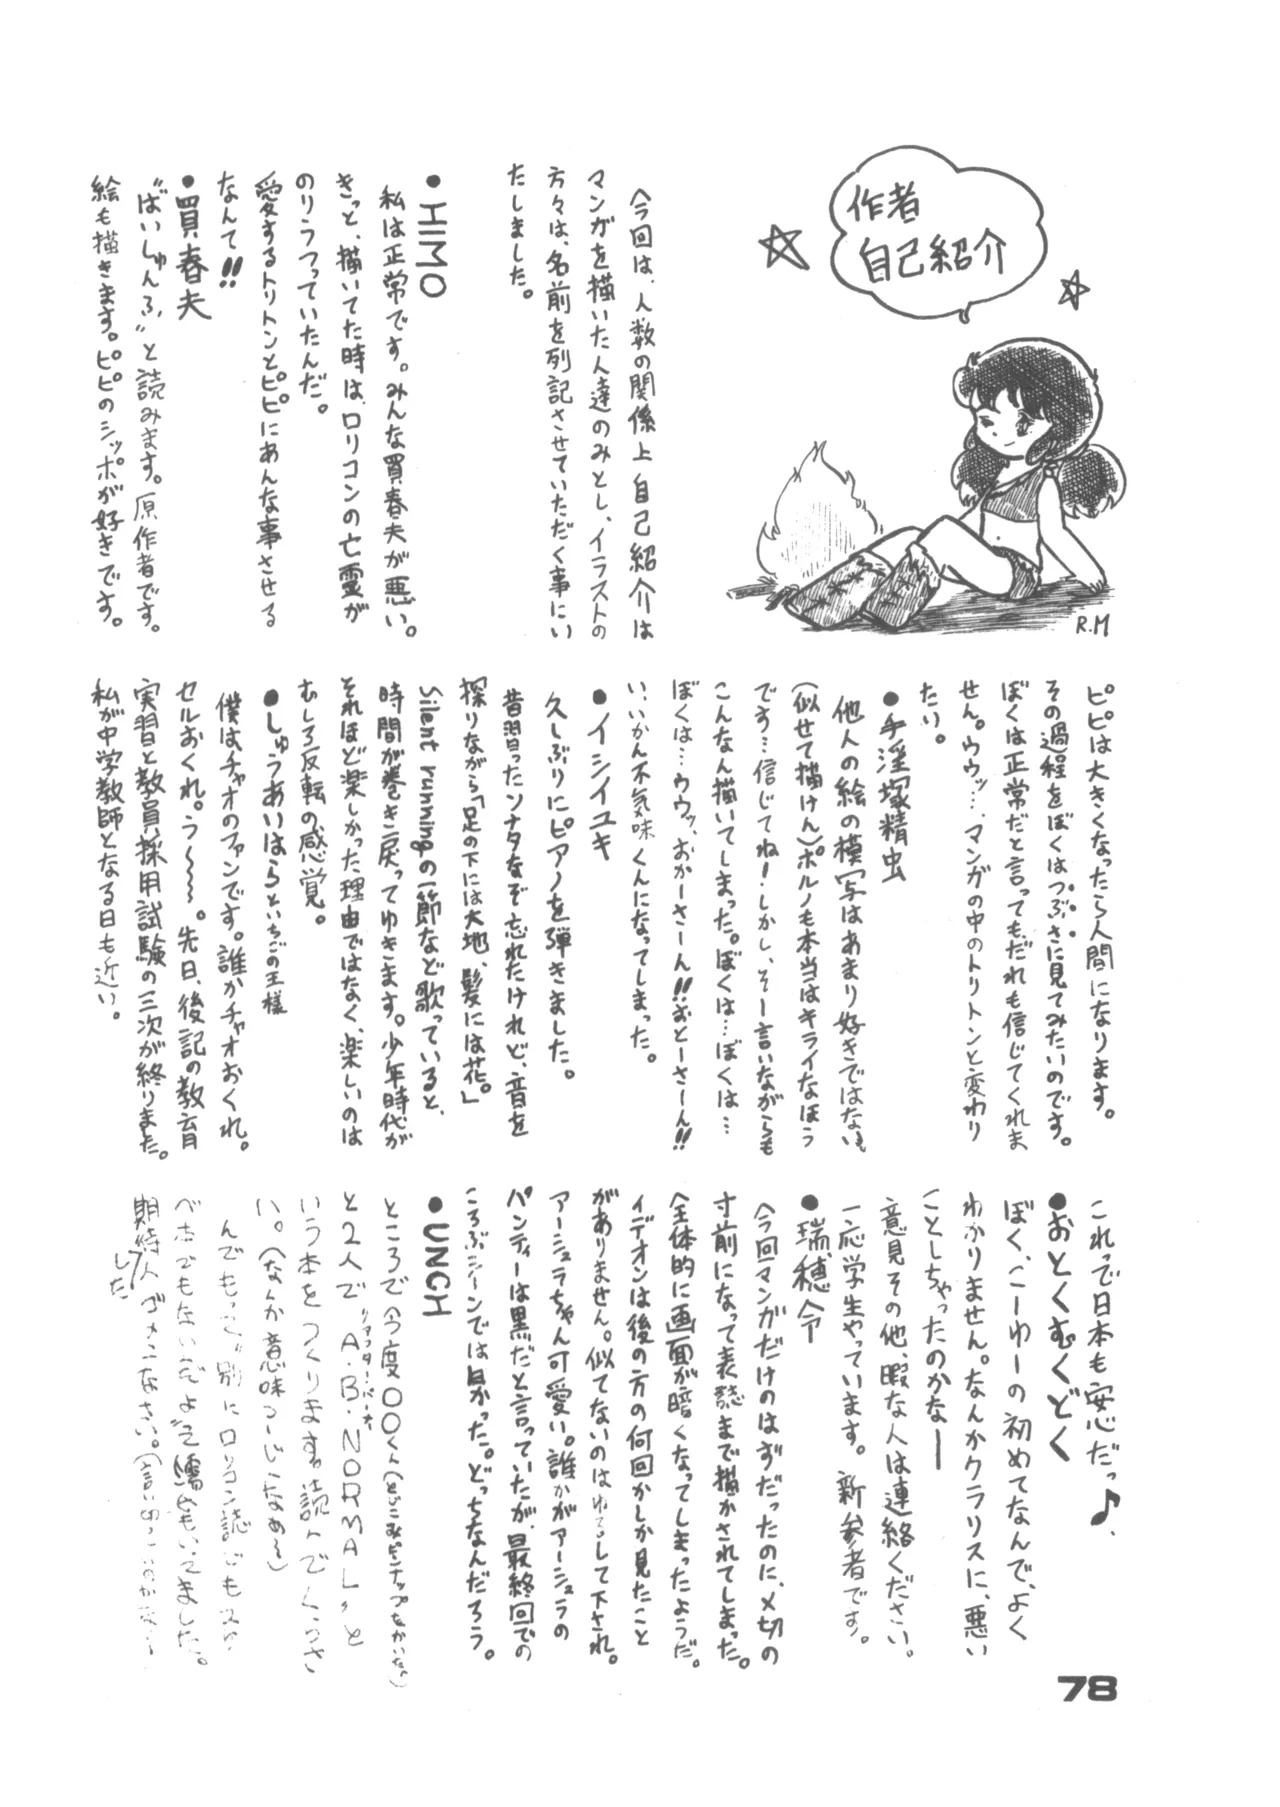 作者
自己紹介
R.M
今回は、人数の関係上自己紹介は
マンガを描いた人達のみとし、イラストの
方々は、名前を列記させていただく事にい
たしました。
●HIMO
私は正常です。みんな買春夫が悪い。
きっと、描いてた時は、ロリコンの亡霊が
のりうつっていたんだ。
愛するトリトンとピピにあんな事させる
なんて!!
●買春夫
“ばいしゅんふ”と読みます。原作者です。
絵も描きます。ピピのシッポが好きです。
ピピは大きくなったら人間になります。
その過程をぼくはつぶさに見てみたいのです。
ぼくは正常だと言ってもだれも信じてくれま
せん。ウウッ…、マンガの中のトリトンと変わり
たい。
●手淫塚精虫
他人の絵の模写はあまり好きではない
(似せて描けん)ポルノも本当はキライなほう
です…信じてね!しかし、そー言いながらも
こんなん描いてしまった。ぼくは…ぼくは…
ぼくは…ウウッ、おかーさーん!!おとーさーん!!
い、いかん不気味くんになってしまった。
●イシイユキ
久しぶりにピアノを弾きました。
昔習ったソナタなぞ忘れたけれど、音を
探りながら「足の下には大地、髪には花。」
Silent runningの一節など歌っていると、
時間が巻き戻ってゆきます。少年時代が
それほど楽しかった理由ではなく、楽しいのは
むしろ反転の感覚。
●しゅうあいはらといちごの王様
僕はチャオのファンです。誰かチャオおくれ。
セルおくれ。う〜〜〜。先日、後記の教育
実習と教員採用試験の三次が終りました。
私が中学教師となる日も近い。
これで日本も安心だっ♪
●おとくむくどく
ぼく、こーゆーの初めてなんで、よく
わかりません。なんかクラリスに、悪い
ことしちゃったのかなー
意見その他、暇な人は連絡ください。
一応学生やっています。新参者です。
●瑞穂令
今回マンガだけのはずだったのに、〆切の
寸前になって表誌まで描かされてしまった。
全体的に画面が暗くなってしまったようだ。
イデオンは後の方の何回かしか見たこと
がありません。似てないのはゆるして下され。
アーシュラちゃん可愛い。誰かがアーシュラの
パンティーは黒だと言っていたが、最終回での
ころぶシーンでは白かった。どっちなんだろう。
●UNCH
ところで今度〇〇くん(とじこみピンナップをかいた)
と2人で“A・B・NORMAL”と
いう本をつくります。読んでくっさ
い。(なんか意味つーじなあ〜)
んでもって、別にロリコン誌でも
べ本でもないんだよ
期待した人ゴメンなさい。
78